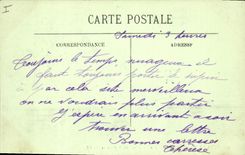 I
CARTE POSTALE
CORRESPONDANCE ADRESSE
Samedi 3 heures
Toujours le temps nuageux il
faut toujours
car cela est merveilleux
on ne voudrait plus partir
J'espère en arrivant a soir
trouver une lettre
Bonnes caresses
Thérèse